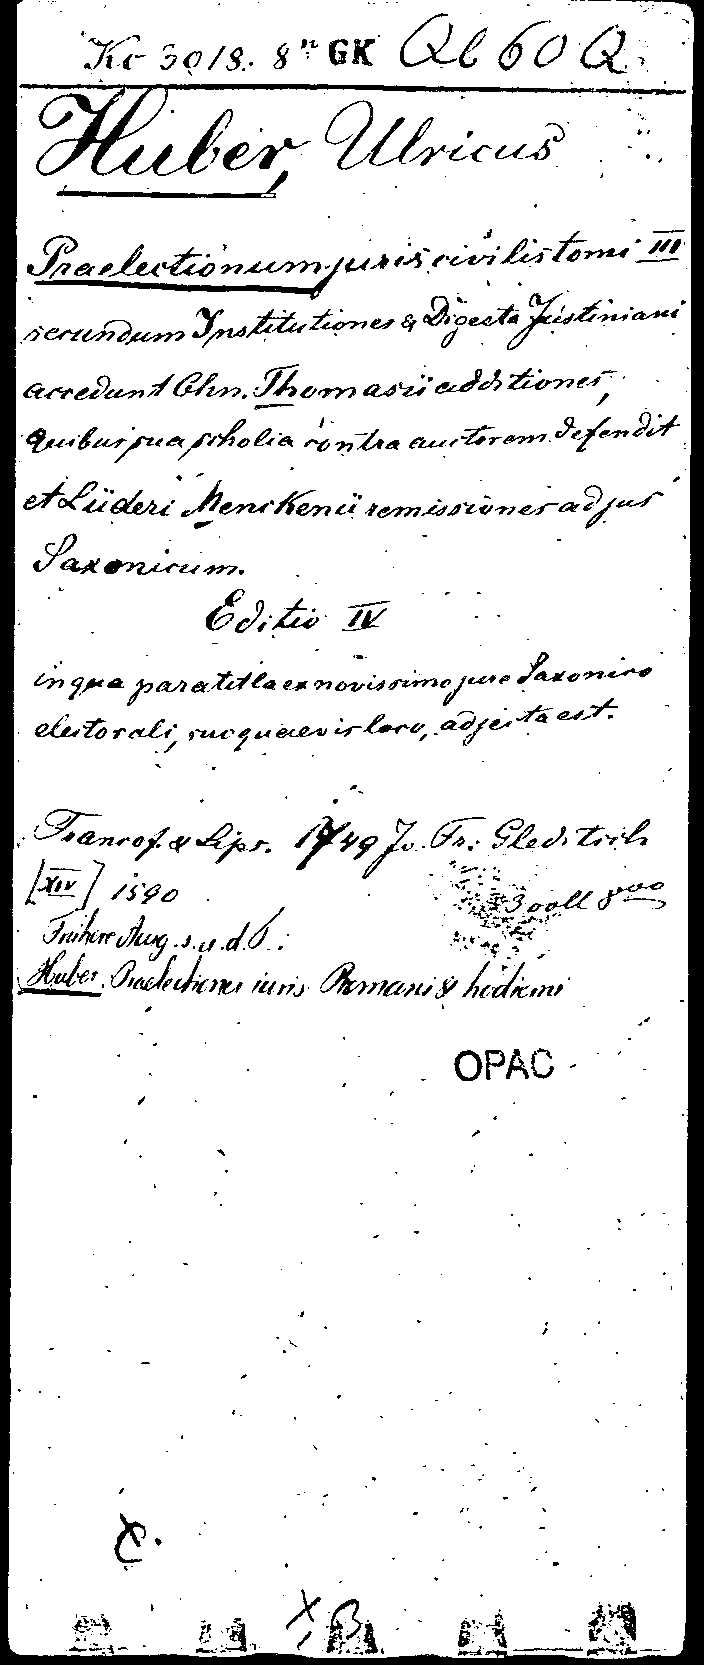 Kc 3018. 8° GK Qb 60 Q
Huber, Ulricus
Praelectionum juris civilis tomi III
secundum Institutiones & Digesta Justiniani
accedunt Chn. Thomasii additiones,
quibus sua scholia contra auctorem defendit
et Lüderi Menckenii remissiones ad jus
Saxonicum.
Editio IV
in qua paratitla ex novissimo jure Saxonico
electorali, suo quaevis loco, adjecta est.
Francof. & Lips. 1749 Jo. Fr. Gleditsch
[XIV] 1590
Frühere Ausg. s. u. d. T.:
Huber. Praelectiones iuris Romani & hodierni
OPAC